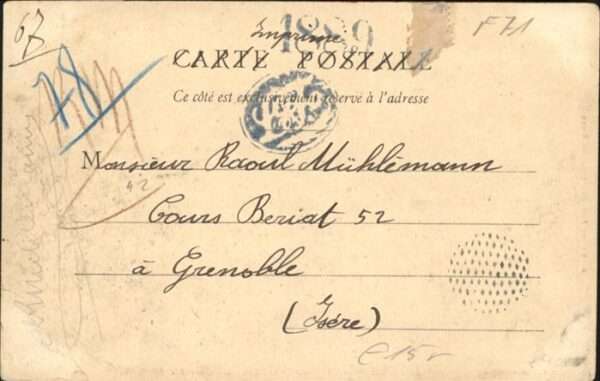 67
Imprimé
1889
F71
CARTE POSTALE
Ce côté est exclusivement réservé à l'adresse
78
Monsieur Raoul Mühlemann
42
Cours Beriat 52
à Grenoble
(Isére)